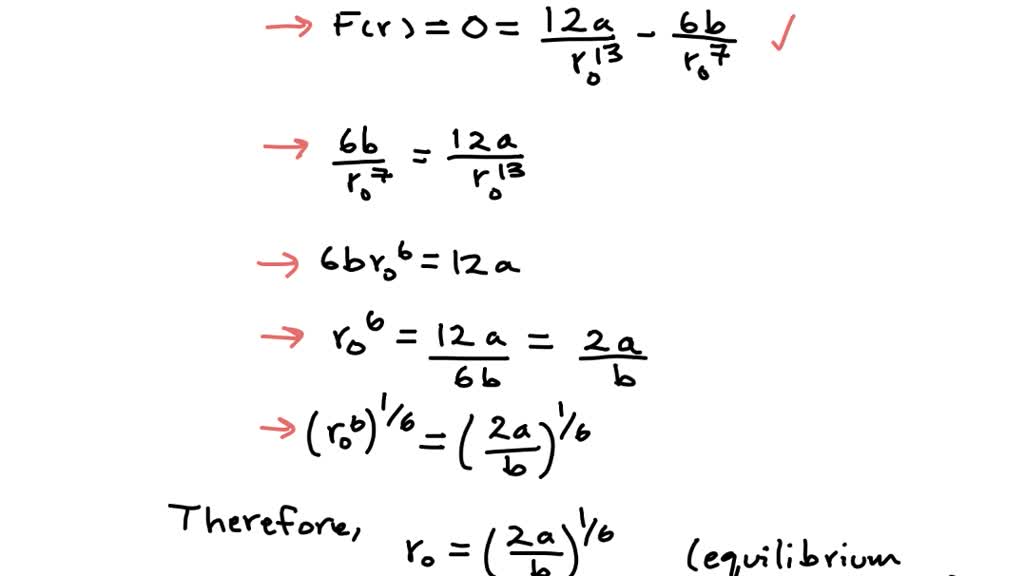 → F(r) = 0 = 12a/r₀¹³ - 6b/r₀⁷ ✓
→ 6b/r₀⁷ = 12a/r₀¹³
→ 6br₀⁶ = 12a
→ r₀⁶ = 12a/6b = 2a/b
→ (r₀⁶)^1/6 = (2a/b)^1/6
Therefore, r₀ = (2a/b)^1/6 (equilibrium